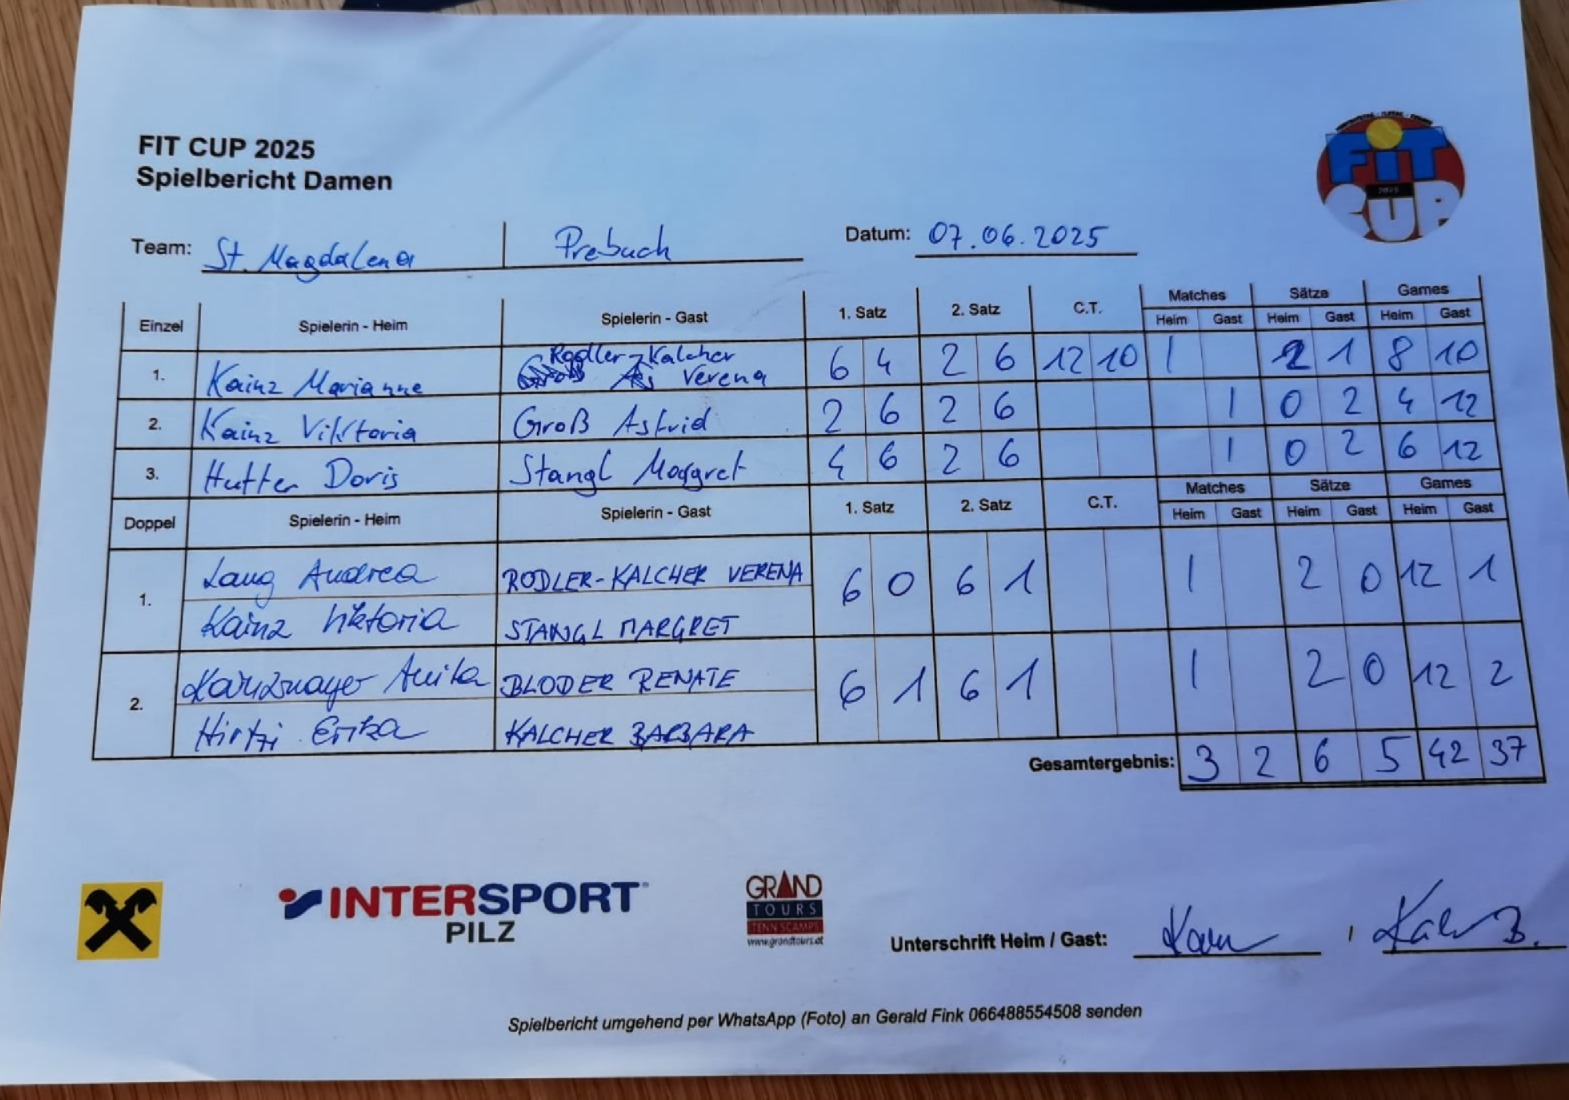 FIT CUP 2025
Spielbericht Damen
FIT CUP
Team: St. Magdalena | Prebuch Datum: 07.06.2025
Matches Sätze Games
Einzel Spielerin - Heim Spielerin - Gast 1. Satz 2. Satz C.T. Heim Gast Heim Gast Heim Gast
1. Kainz Marianne Rodler-Kalcher Verena 6 4 2 6 12 10 1 2 1 8 10
2. Kainz Viktoria Groß Astrid 2 6 2 6 1 0 2 4 12
3. Hutter Doris Stangl Margret 4 6 2 6 1 0 2 6 12
Matches Sätze Games
Doppel Spielerin - Heim Spielerin - Gast 1. Satz 2. Satz C.T. Heim Gast Heim Gast Heim Gast
1. Lang Andrea RODLER-KALCHER VERENA 6 0 6 1 1 2 0 12 1
Kainz Viktoria STANGL MARGRET
2. Anita BLODER RENATE 6 1 6 1 1 2 0 12 2
Hirtzi Erika KALCHER BARBARA
Gesamtergebnis: 3 2 6 5 42 37
INTERSPORT
PILZ
GRAND
TOURS
TENNISCAMPS
www.grandtours.at
Unterschrift Heim / Gast: /
Spielbericht umgehend per WhatsApp (Foto) an Gerald Fink 066488554508 senden